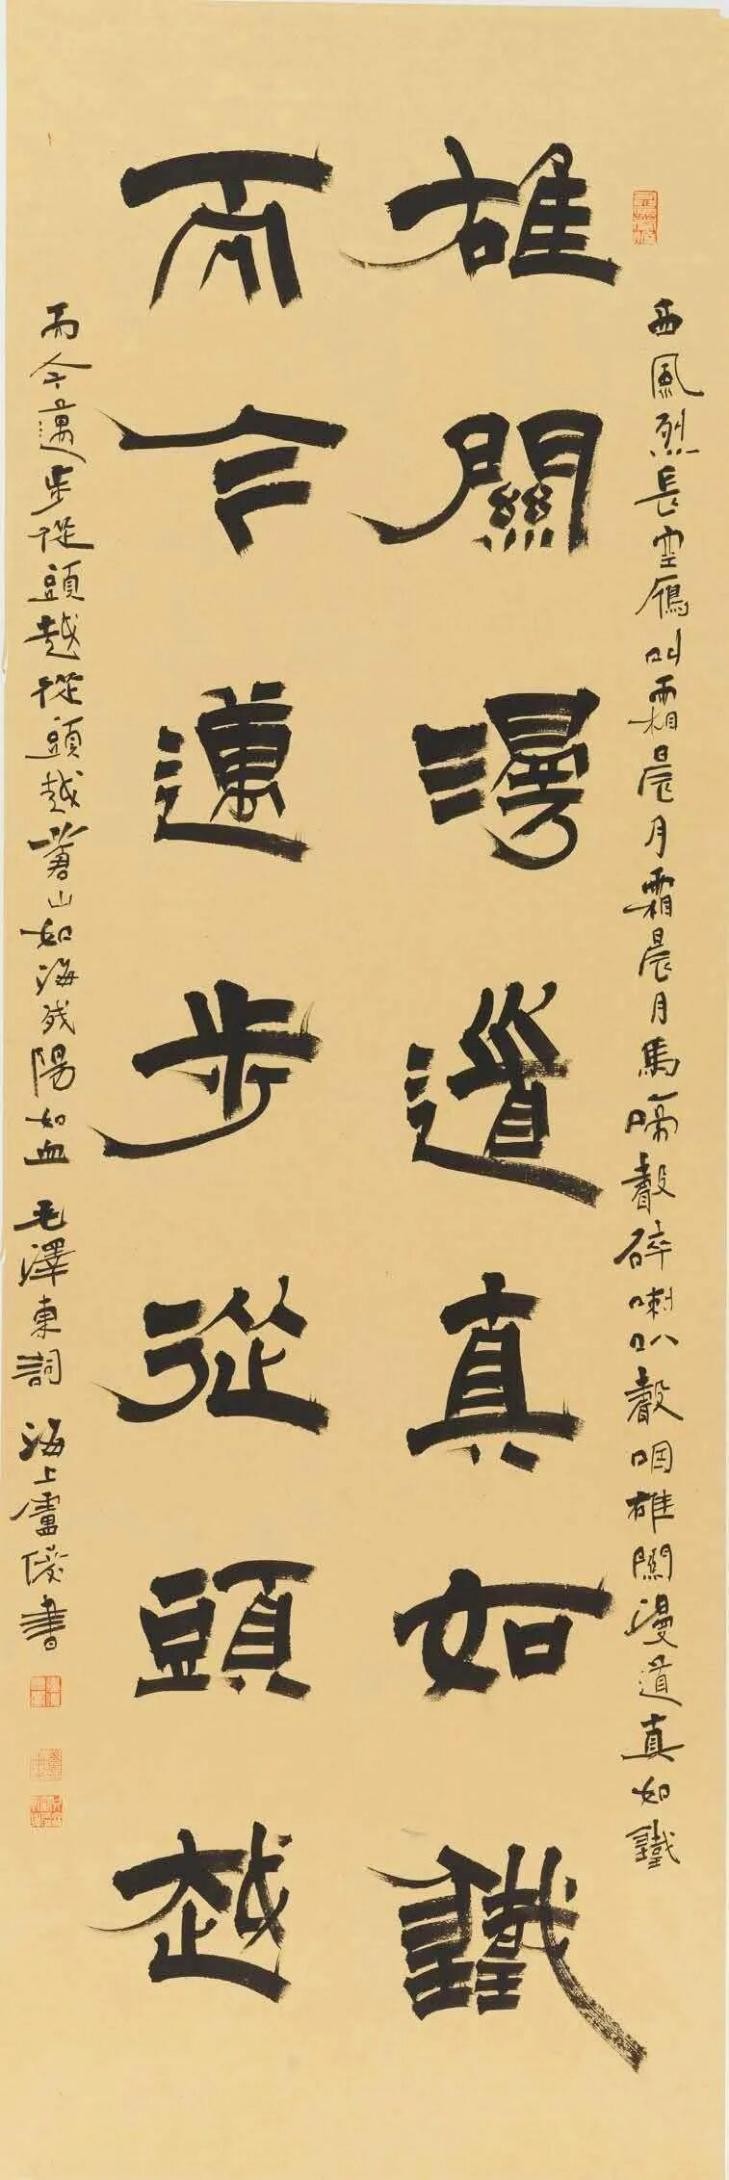 西風烈長空鴈叫霜晨月霜晨月馬啼聲碎喇叭聲咽雄關漫道真如鐵
雄關漫道真如鐵
而今邁步從頭越
而今邁步從頭越從頭越蒼山如海残陽如血 毛澤東詞 海上盧書